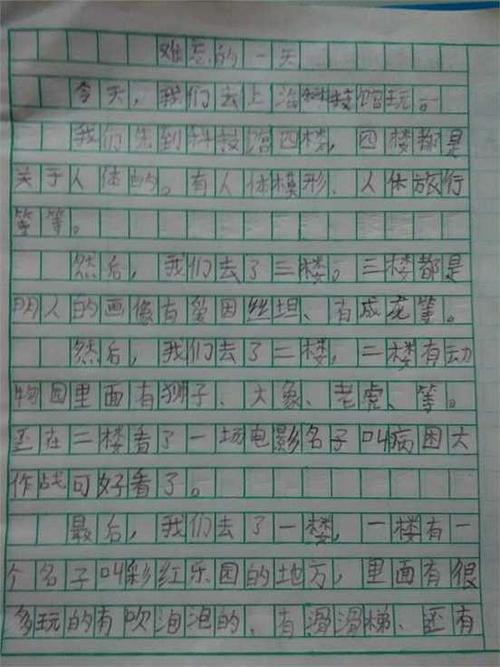 难忘的一天
今天,我们去上海科技馆玩。
我们先到科技馆四楼,四楼都是
关于人体的。有人体模形、人体旅行
等等。
然后,我们去了三楼。三楼都是
明人的画像有爱因丝坦、有成龙等。
然后,我们去了二楼,二楼有动
物园里面有狮子、大象、老虎、等。
还在二楼看了一场电影名子叫病困大
作战可好看了。
最后,我们去了一楼,一楼有一
个名子叫彩红乐园的地方,里面有很
多玩的有吹泡泡的、有滑滑梯、还有